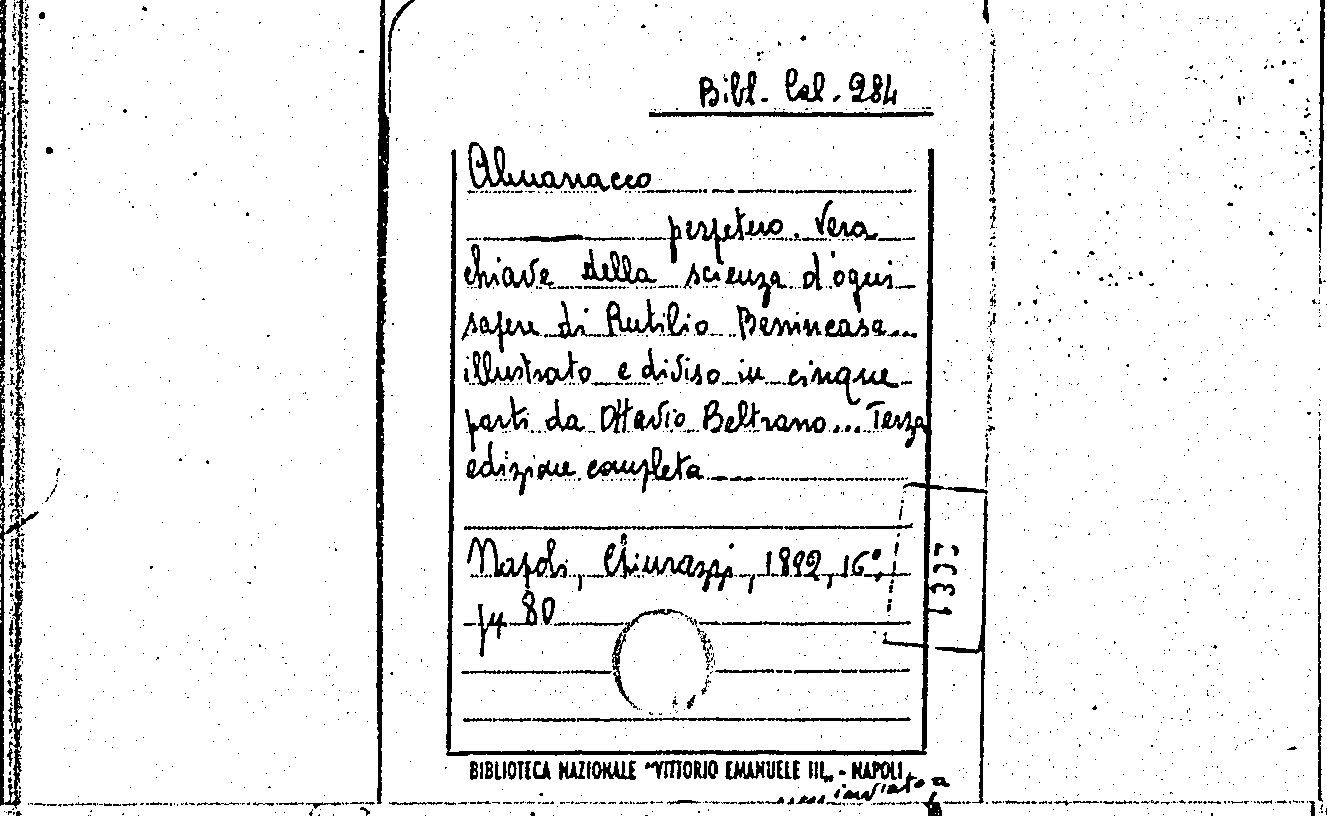 Bibl. Cal. 284
Almanacco
perpetuo. Vera
chiave della scienza d'ogni
sapere di Rutilio Benincasa...
illustrato e diviso in cinque
parti da Ottavio Beltrano... Terza
edizione completa
Napoli, Chiurazzi, 1892, 16°,
80
1337
BIBLIOTECA NAZIONALE "VITTORIO EMANUELE III" - NAPOLI
inviato a